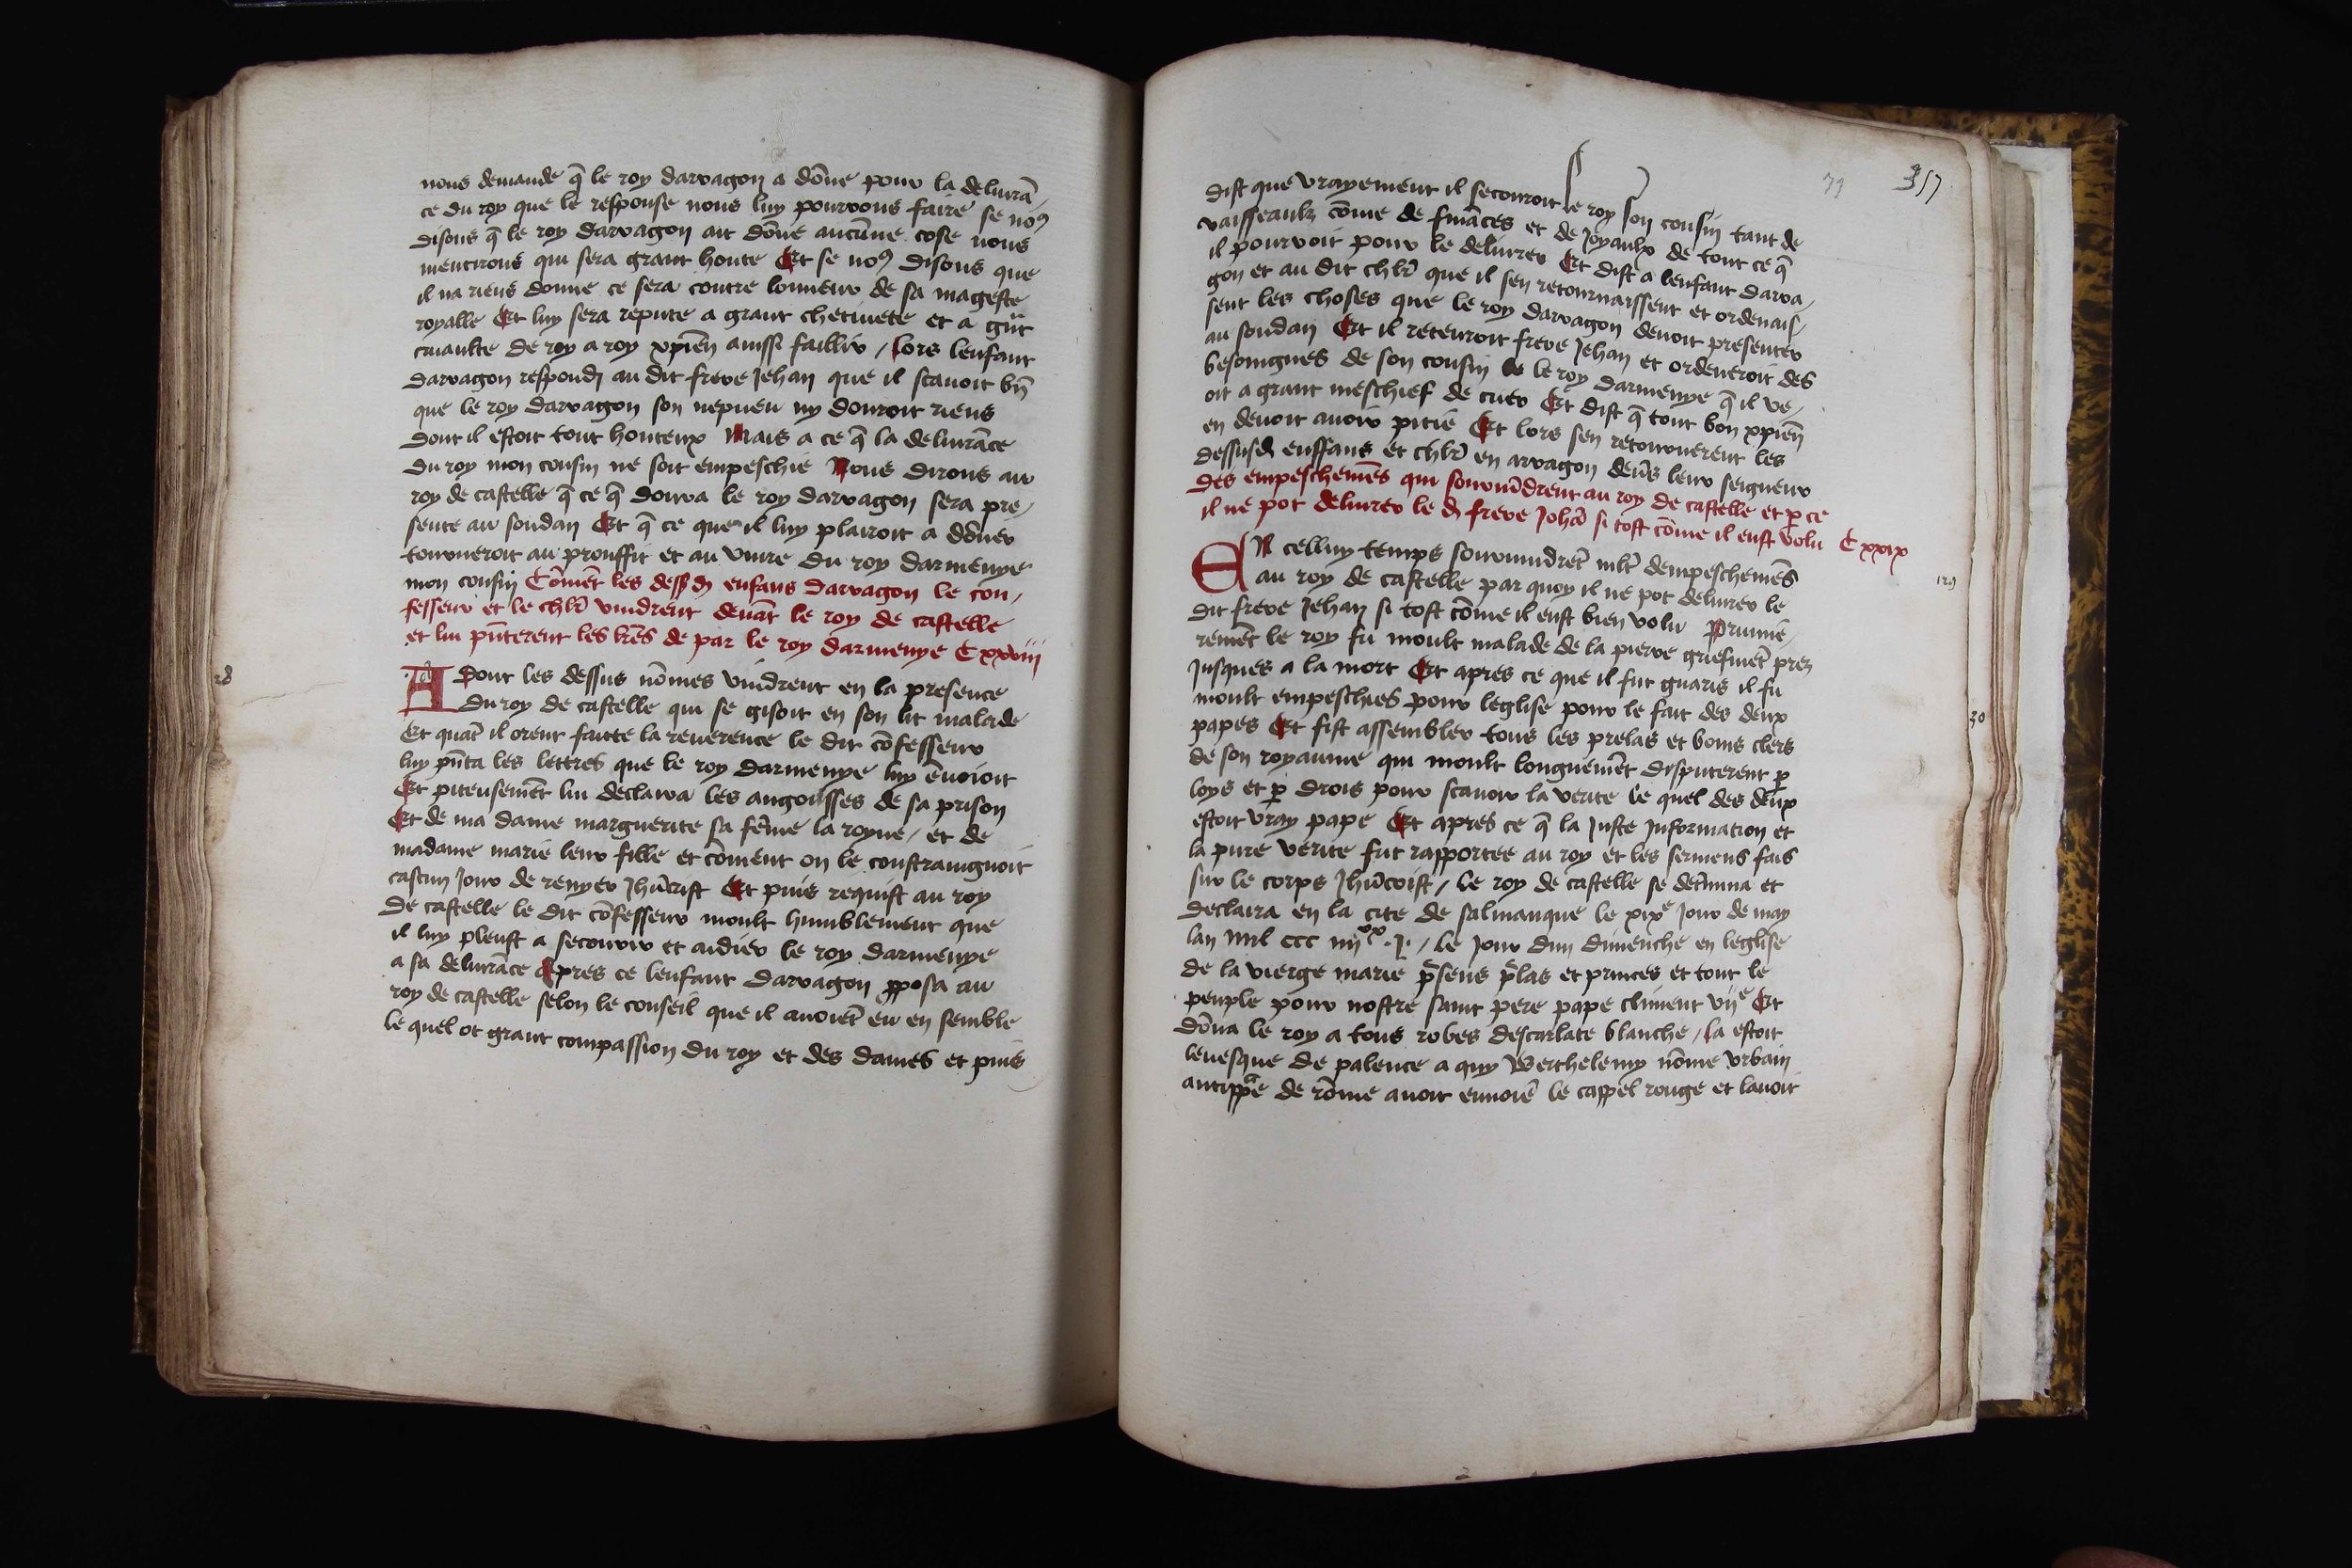 nous demande q̄ le roy darragon a dōne pour la deliurā
ce du roy que le response nous luy pourrons faire se noꝰ
disons q̄ le roy darragon ait dōne aucūne cose nous
mentirons qui sera grant honte Et se noꝰ disons que
il na riens donne ce sera contre lonneur de sa mageste
royalle Et luy sera repute a grant chetiuete et a gūt
cruaulte de roy a roy xp̄ien aussi faillir / Lors lenfant
darragon respondj au dit frere Jehan que il scauoit bn̄
que le roy darragon son nepueu ny donroit riens
dont il estoit tout honteux Mais a ce q̄ la deliurāce
du roy mon cousin ne soit empeschie Nous dirons au
roy de castelle q̄ ce q̄ donra le roy darragon sera pre/
sente au soudan Et q̄ ce que il luy plairoit a dōner
tourneroit au prouffit et au viure du roy darmenye
mon cousin Cōmēt les dess dj enfans darragon le con/
fesseur et le chlr̄ vindrent deuāt le roy de castelle
et lui pn̄terent les lr̄es de par le roy darmenye C xxviij
28
A dont les dessus nōmes vindrent en la presence
du roy de castelle qui se gisoit en son lit malade
Et quāt il orent faitte la reuerence le dit cōfesseur
luy pn̄ta les lettres que le roy darmenye luy ēnuoioit
Et piteusemēt lui declaira les angousses de sa prison
Et de ma dame marguerite sa fēme la royne / et de
madame marie leur fille et cōment on le constraingnoit
cascun Jour de renyer Jhūcrist Et puis requist au roy
de castelle le dit cōfesseur moult humblement que
il luy pleust a secourir et aidier le roy darmenye
a sa deliurāce Apres ce lenfant darragon ꝓposa au
roy de castelle selon le conseil que il auoiēt eu en semble
le quel ot grant compassion du roy et des dames et puis
79 357
dist que vrayement il secourroit le roy son cousin tant de
vaisseaulz cōme de fināces et de Joyaulx de tout ce q̄
il pourroit pour le deliurer Et dist a lenfant darra/
gon et au dit chlr̄ que il sen retournaissent et ordenais/
sent les choses que le roy darragon deuoit presenter
au soudan Et il retenroit frere Jehan et ordeneroit des
besoingnes de son cousin le roy darmenye q̄ il ve/
oit a grant meschief de cuer Et dist q̄ tout bon xp̄ien
en deuoit auoir pitie Et lors sen retournerent les
dessusdj enffans et chlr̄ en arragon deūs leur seigneur
des empeschemēs qui souruīdrent au roy de castelle et ꝑ ce
il ne pot deliurer le dj frere Johā si tost cōme il eust volu C xxix
129
EN celluy temps souruindrēt mlt̄ dempeschemēs
au roy de castelle par quoy il ne pot deliurer le
dit frere Jehan si tost cōme il eust bien volu Prumie/
remēt le roy fu moult malade de la pierre griefmēt prez
Jusques a la mort Et apres ce que il fut guaris il fu
moult empeschies pour leglise pour le fait des deux
30
papes Et fist assembler tous les prelas et bons clers
de son royaume qui moult longuemēt disputerent ꝑ
loys et ꝑ drois pour scauoir la verite le quel des deux
estoit vray pape Et apres ce q̄ la Juste Information et
la pure verite fut rapportee au roy et les sermens fais
sur le corps Jhūcrist / le roy de castelle se det̄mina et
declaira en la cite de salmanque le xixᵉ Jour de may
lan mil ccc iiijˣˣ .J. / le Jour dun dimenche en leglise
de la vierge marie p̄sens p̄las et princes et tout le
peuple pour nostre saint pere pape climent vijᵉ Et
dōna le roy a tous robes descarlate blanche / la estoit
leuesque de palence a quy Berthelemy nōme vrbain
antippᵃe de rōme auoit enuoiē le cappel rouge et lauoit